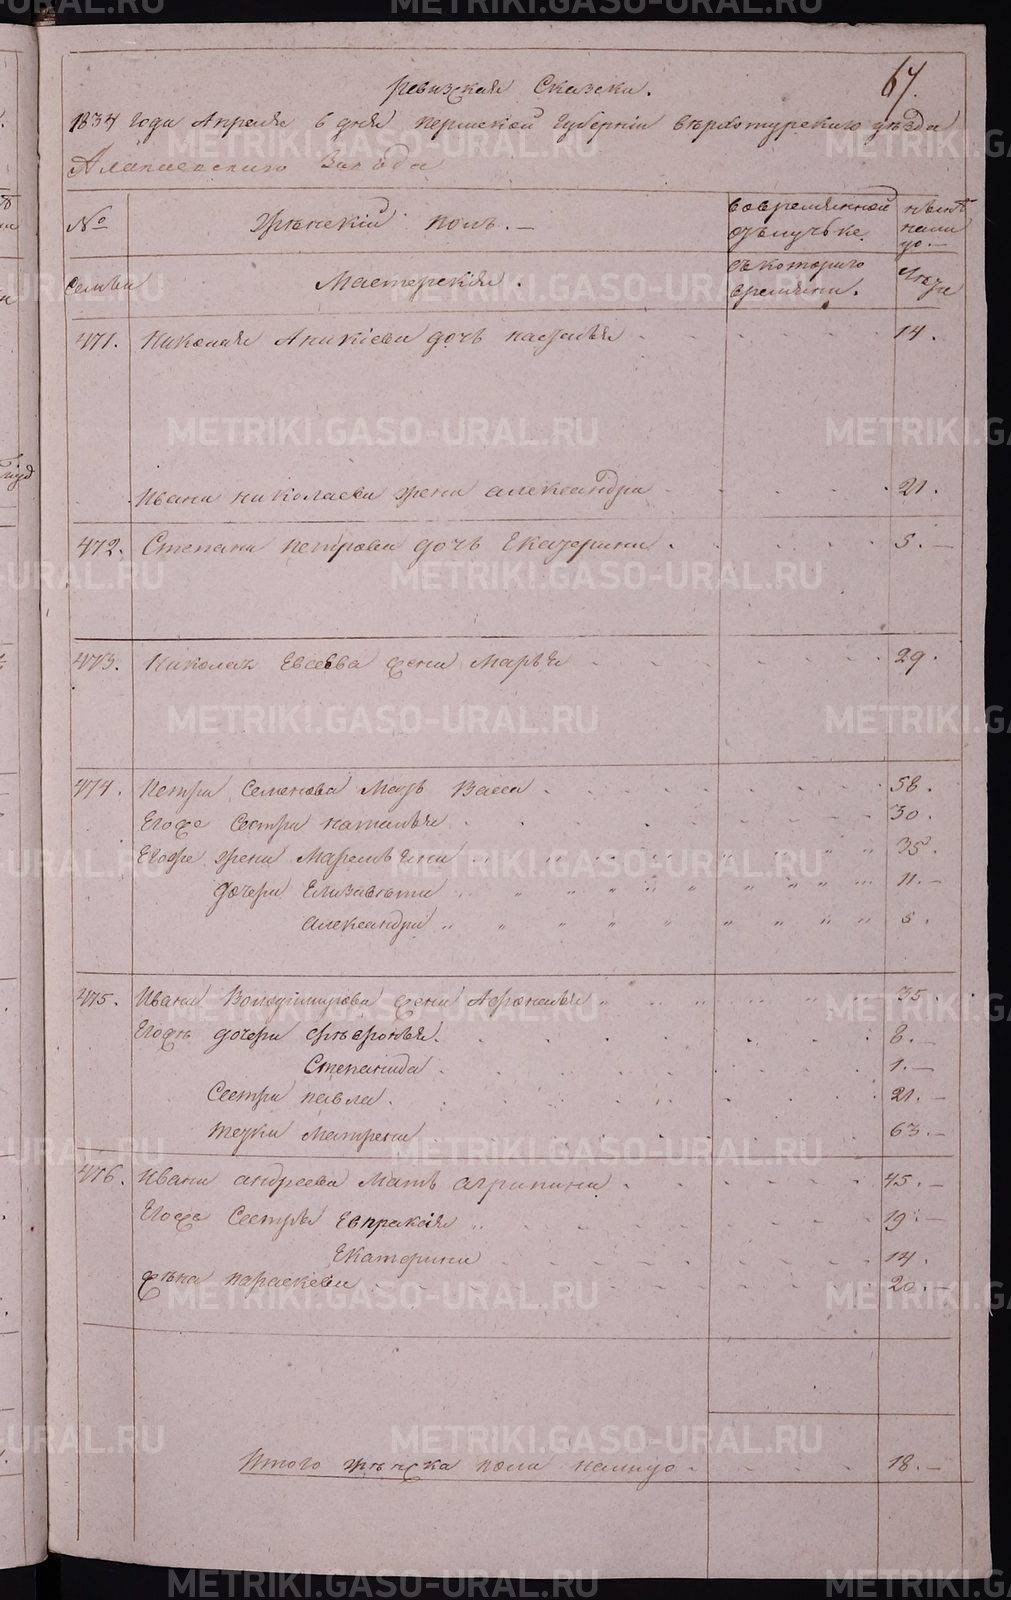 67.
Ревизская Сказка.
1834 года Апреля 6 дня Пермской Губернии Верхотурского уезда
Алапаевского Завода
№ Женский полъ. — вовременной отлучьке. нынѣ налицо. —
Семьи Мастерскія. съ котораго времяни. Лета
471. Николая Аникіева дочь Наталья 14.
Ивана Николаева жена Александра 21.
472. Степана Петрова дочь Екатерина. 5. —
473. Николая Евсеева жена Марья 29.
474. Петра Семенова Мать Васса 58.
Егоже Сестра Наталья 30.
Егоже жена Маремьяна 35.
дочери Елизавета 11. —
Александра 5.
475. Ивана Володимирова жена Афонасья 35.
Егожъ дочери Февронья. 8. —
Степанида 1. —
Сестра Павла. 21. —
тетка Матрена 63. —
476. Ивана Андреева Мать Агрипина 45. —
Егоже Сестры Евпраксія 19. —
Екатерина 14.
жена Параскева 20. —
Итого женска пола налицо 18. —
METRIKI.GASO-URAL.RU